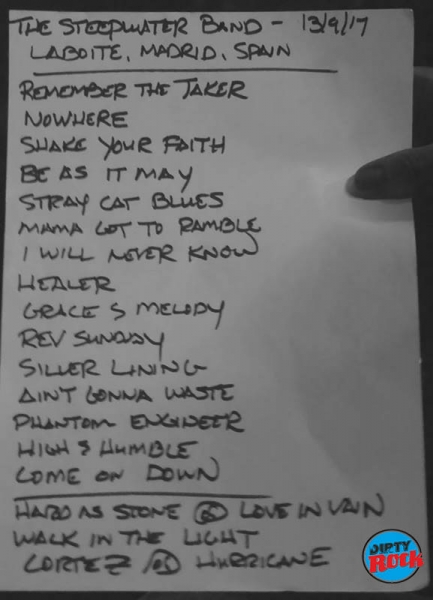 THE STEEPWATER BAND - 13/9/17
LABOITE, MADRID, SPAIN
REMEMBER THE TAKER
NOWHERE
SHAKE YOUR FAITH
BE AS IT MAY
STRAY CAT BLUES
MAMA GOT TO RAMBLE
I WILL NEVER KNOW
HEALER
GRACE & MELODY
REV SUNDAY
SILVER LINING
AIN'T GONNA WASTE
PHANTOM ENGINEER
HIGH & HUMBLE
COME ON DOWN
HARD AS STONE OR LOVE IN VAIN
WALK IN THE LIGHT
CORTEZ OR HURRICANE
DIRTY
ROCK